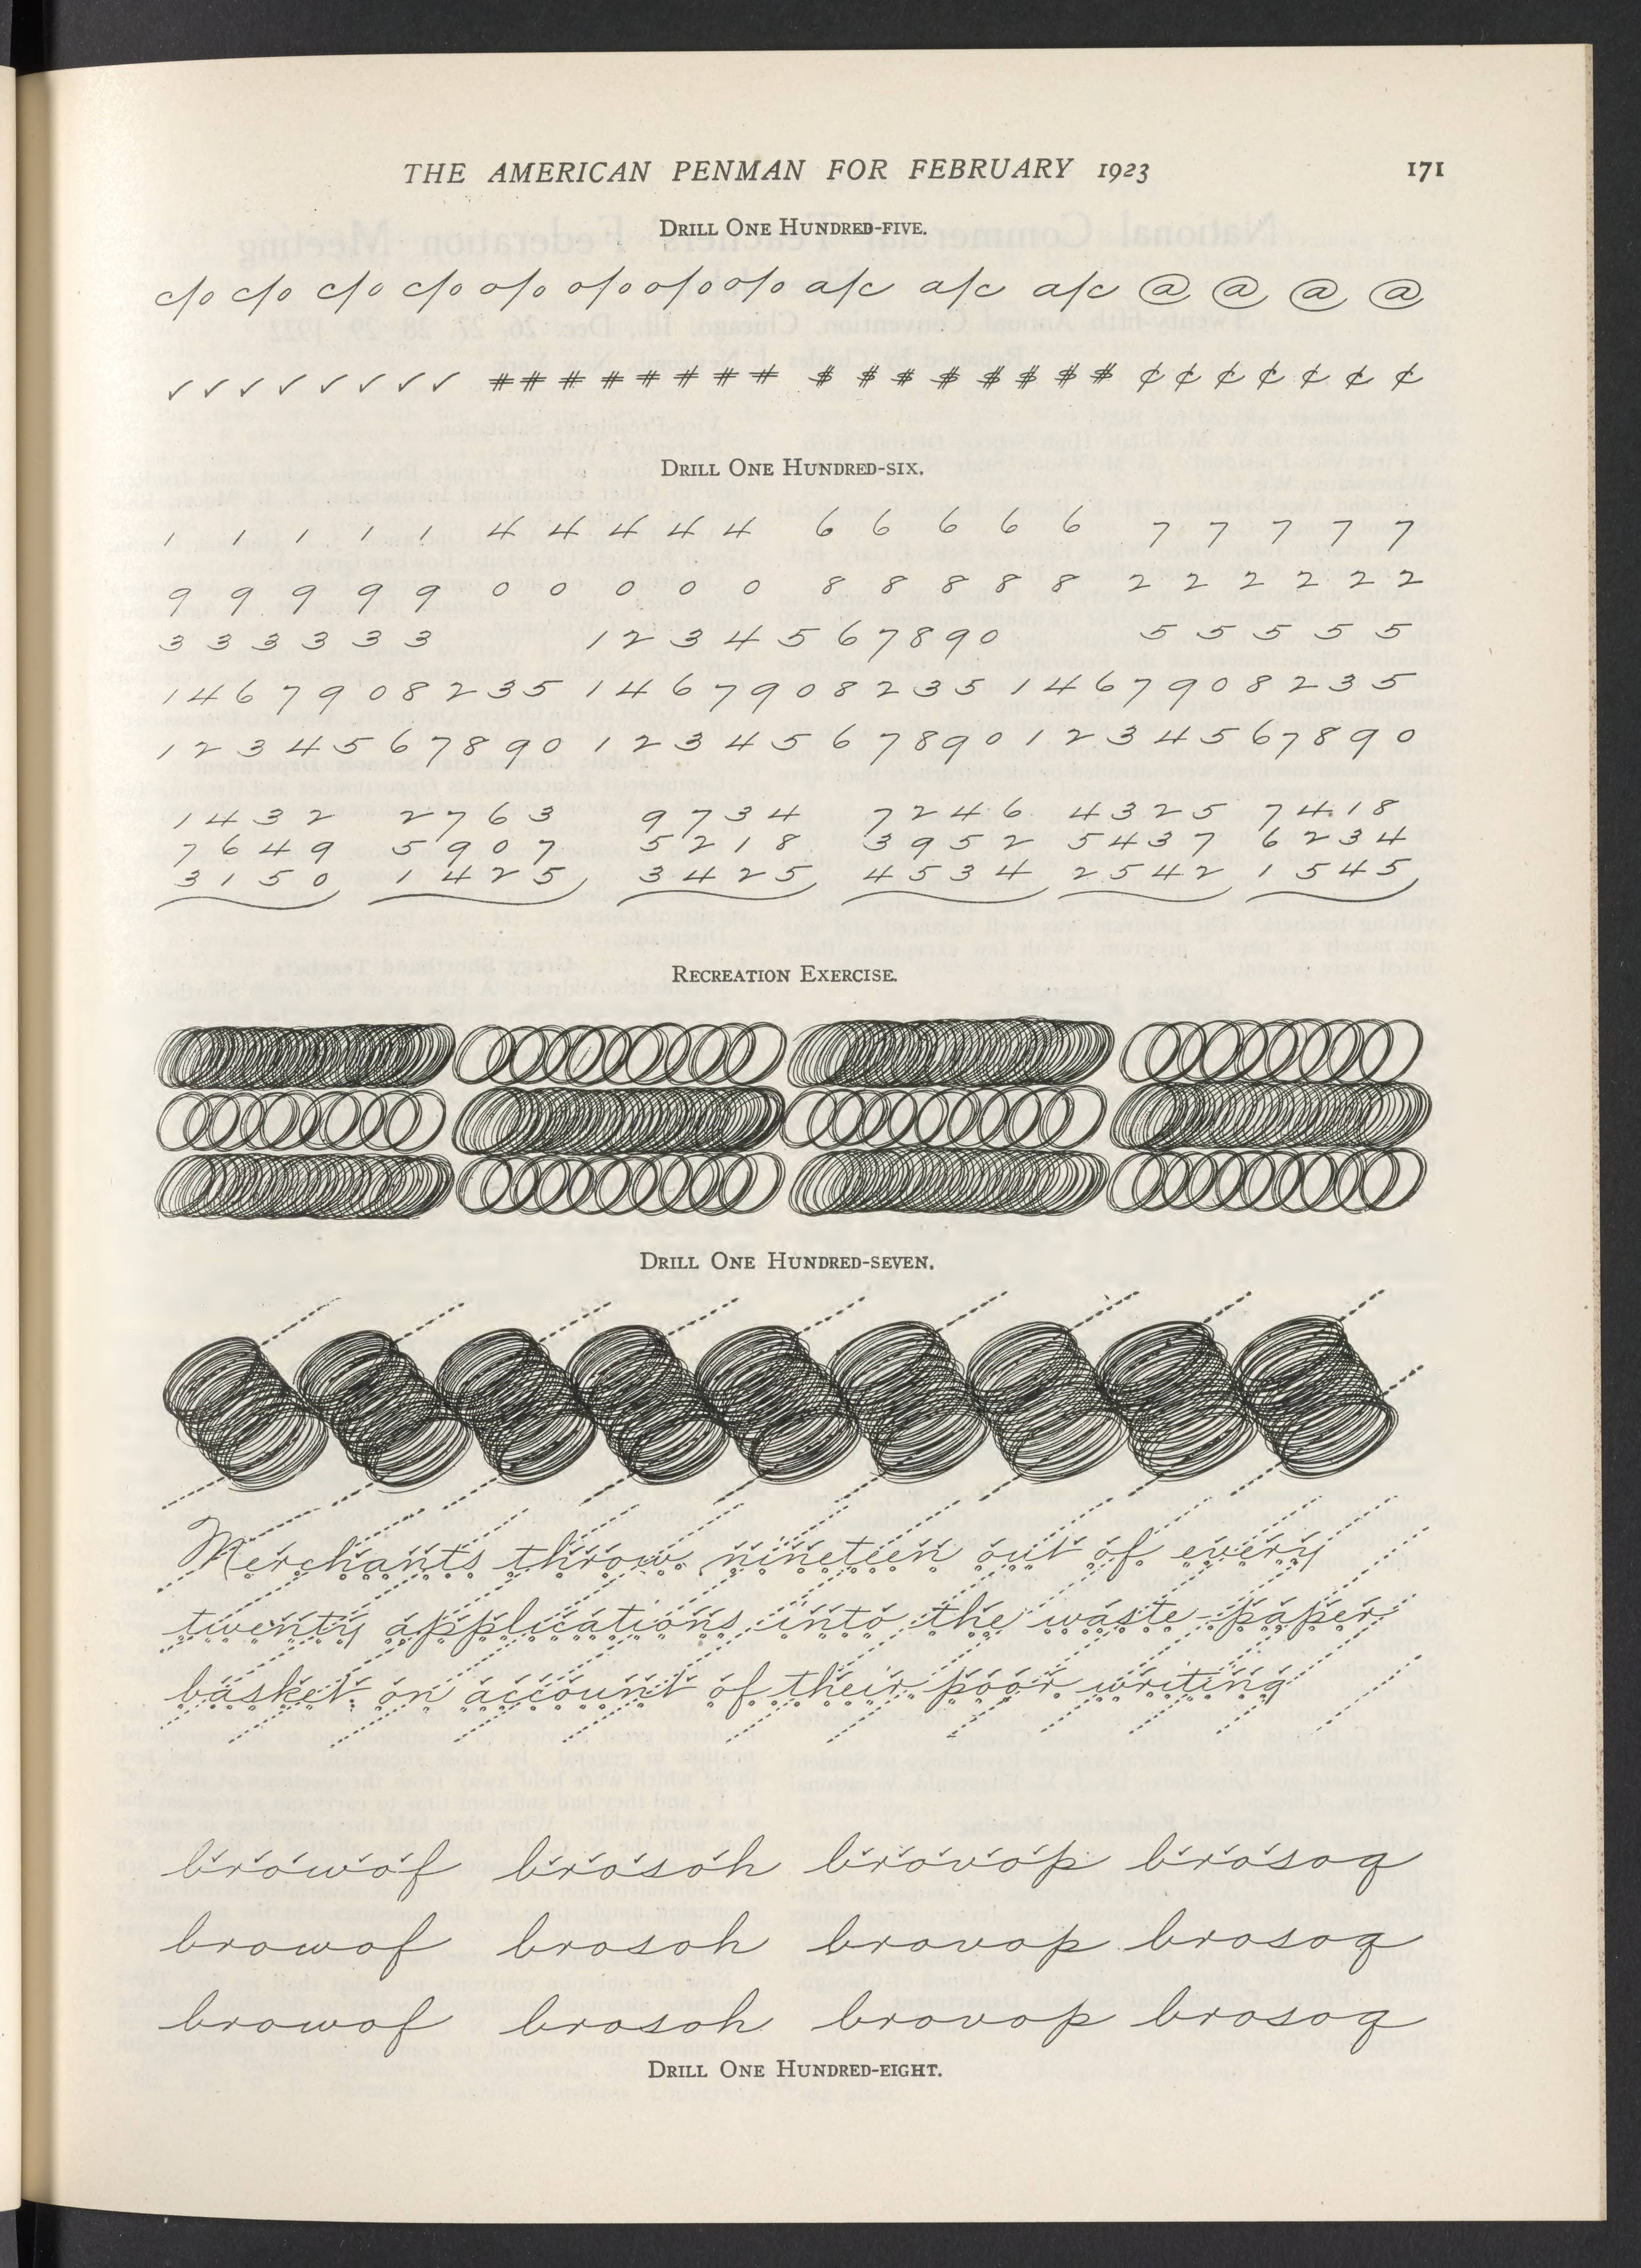 THE AMERICAN PENMAN FOR FEBRUARY 1923 171
DRILL ONE HUNDRED-FIVE.
c/o c/o c/o c/o o/o o/o o/o o/o a/c a/c a/c @ @ @ @
✓ ✓ ✓ ✓ ✓ ✓ ✓ ✓ # # # # # # # # $ $ $ $ $ $ $ $ ¢ ¢ ¢ ¢ ¢ ¢ ¢
DRILL ONE HUNDRED-SIX.
1 1 1 1 1 4 4 4 4 4 6 6 6 6 6 7 7 7 7 7
9 9 9 9 9 0 0 0 0 0 8 8 8 8 8 2 2 2 2 2 2
3 3 3 3 3 3 1 2 3 4 5 6 7 8 9 0 5 5 5 5 5
1 4 6 7 9 0 8 2 3 5 1 4 6 7 9 0 8 2 3 5 1 4 6 7 9 0 8 2 3 5
1 2 3 4 5 6 7 8 9 0 1 2 3 4 5 6 7 8 9 0 1 2 3 4 5 6 7 8 9 0
1432 2763 9734 7246 4325 7418
7649 5907 5218 3952 5437 6234
3150 1425 3425 4534 2542 1545
RECREATION EXERCISE.
DRILL ONE HUNDRED-SEVEN.
Merchants throw nineteen out of every
twenty applications into the waste-paper
basket on account of their poor writing
browof brosoh brovop brosoq
browof brosoh brovop brosoq
browof brosoh brovop brosoq
DRILL ONE HUNDRED-EIGHT.